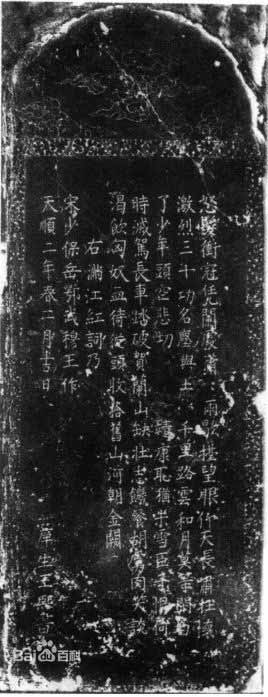 怒髮衝冠凭闌處瀟雨歇擡望眼仰天長嘯壯懷
激烈三十功名塵與土八千里路雲和月莫等閑白
了少年頭空悲切靖康恥猶未雪臣子恨何
時滅駕長車踏破賀蘭山缺壯志饑餐胡虜肉笑談
渴飲匈奴血待從頭收拾舊山河朝金闕
右滿江紅詞乃
宋少保岳鄂武穆王作
天順二年春二月吉日 庠生王熙書
Bai百科